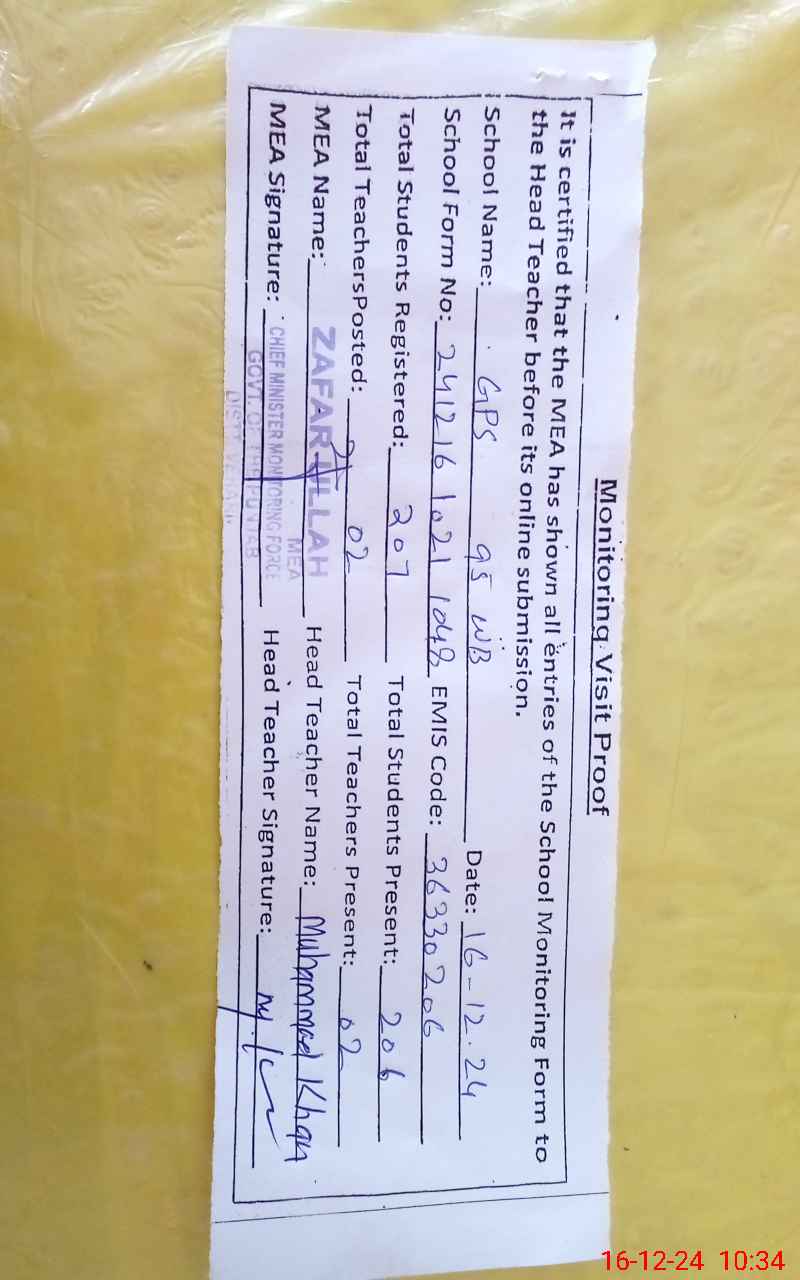 Monitoring Visit Proof
It is certified that the MEA has shown all entries of the School Monitoring Form to
the Head Teacher before its online submission.
School Name: GPS 95 WB Date: 16-12.24
School Form No: 241216 1021 1048 EMIS Code: 36330206
Total Students Registered: 207 Total Students Present: 206
Total TeachersPosted: 02 Total Teachers Present: 02
MEA Name: ZAFAR ULLAH Head Teacher Name: Muhammad Khan
MEA
MEA Signature: CHIEF MINISTER MONITORING FORCE Head Teacher Signature:
GOVT. OF THE PUNJAB
DISTT. VEHARI
16-12-24 10:34